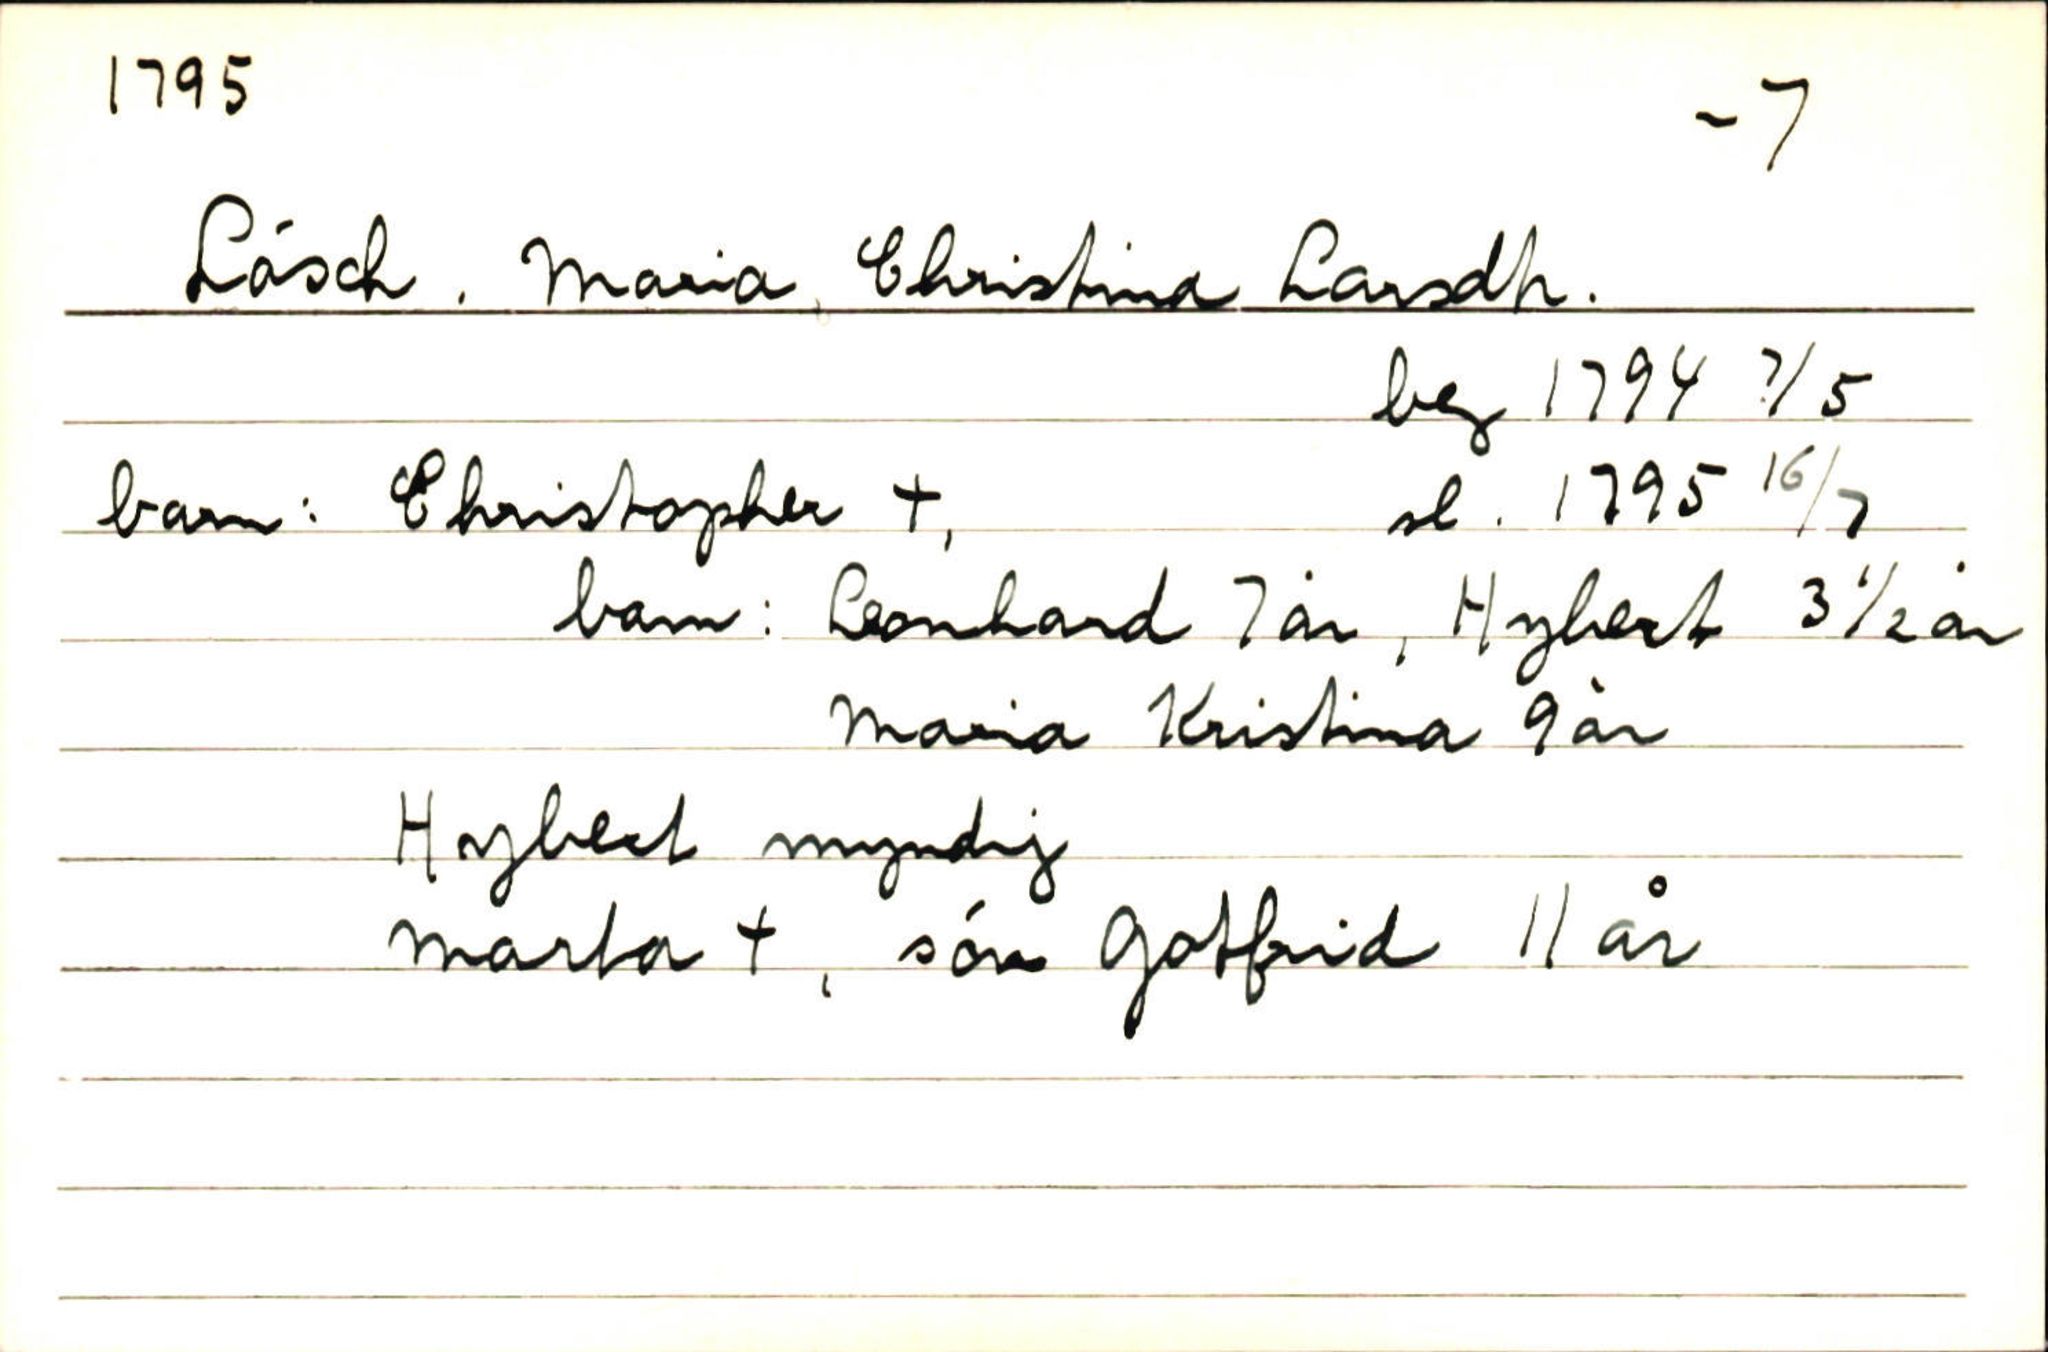 1795 -7
Lösch. Maria Christina Larsdtr.
beg 1794 7/5
barn: Christopher +, sl. 1795 16/7
barn: Leonhard 7 år, Hybert 3 1/2 år
Maria Kristina 9 år
Hybert myndig
Marta +, sön Gotfrid 11 år